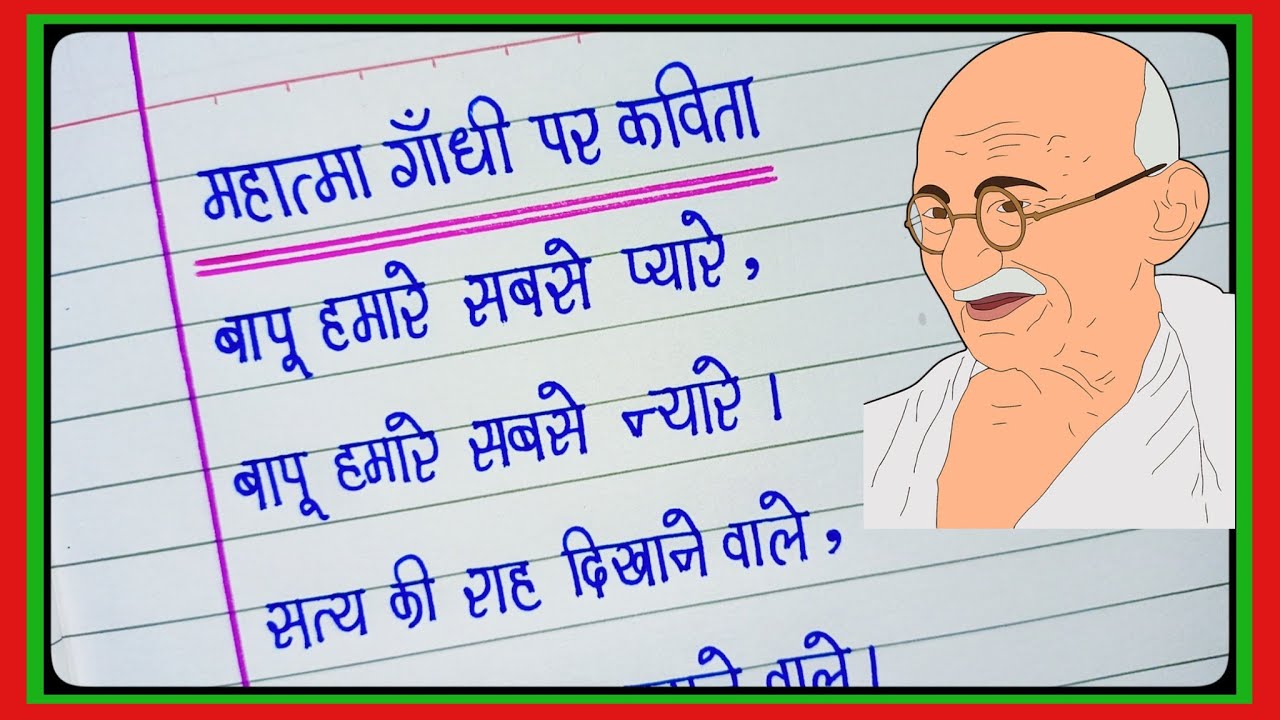 महात्मा गाँधी पर कविता
बापू हमारे सबसे प्यारे,
बापू हमारे सबसे न्यारे।
सत्य की राह दिखाने वाले,
वाले।